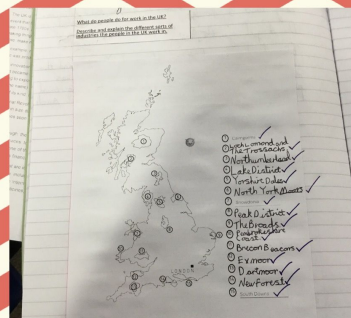 What do people do for work in the UK?
Describe and explain the different sorts of
industries the people in the UK work in.
Loch Lomond and
The Trossachs
Northumberland
Lake District
Yorshire Dales
North York Moors
Peak District
The Broads
Pembrokeshire
Coast
Brecon Beacons
Exmoor
Dartmoor
New Forest
South Downs
LONDON